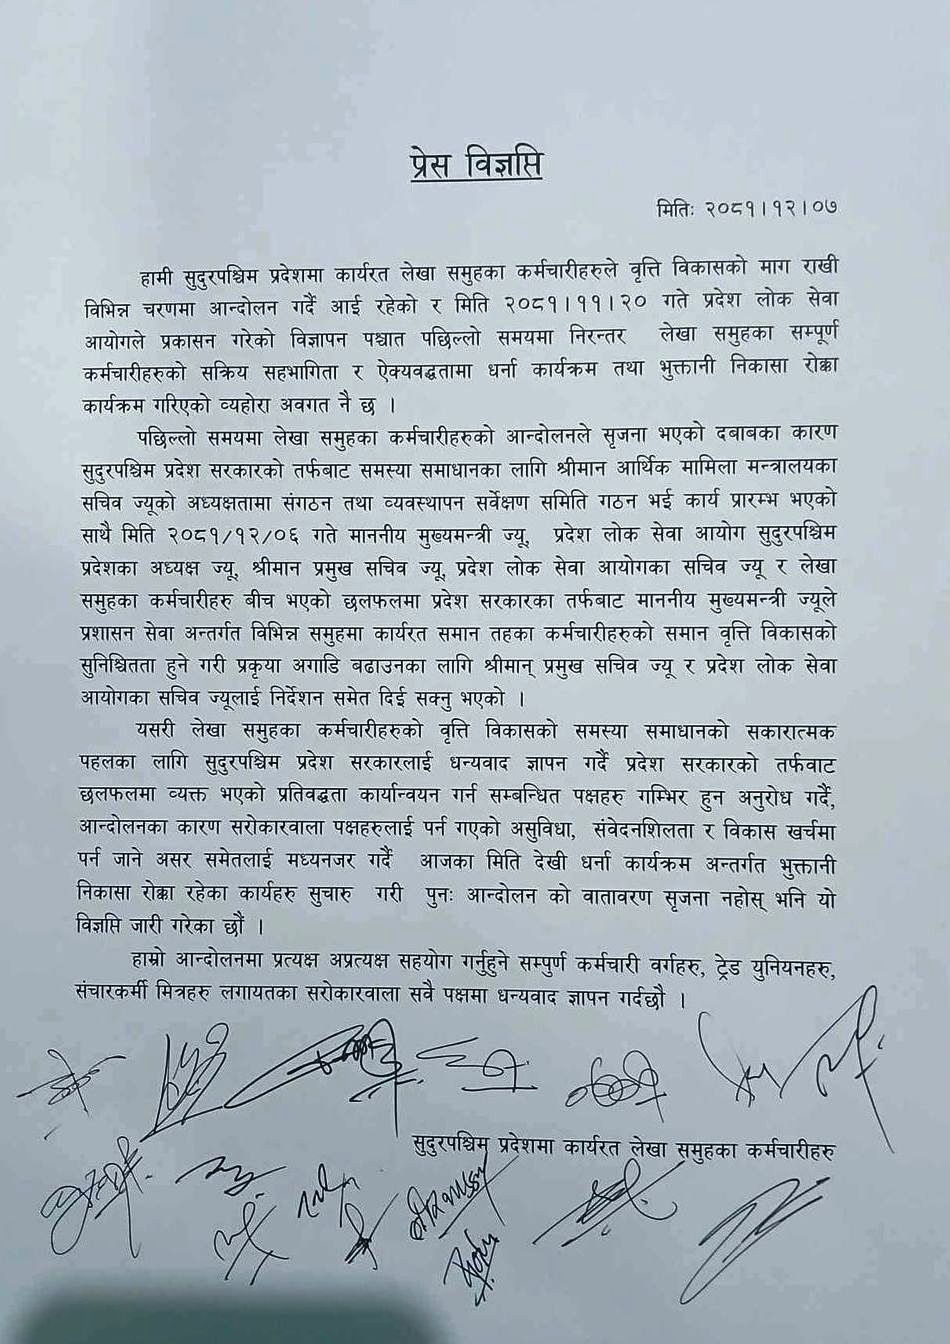 प्रेस विज्ञप्ति
मितिः २०८१।१२।०७
हामी सुदुरपश्चिम प्रदेशमा कार्यरत लेखा समुहका कर्मचारीहरुले वृत्ति विकासको माग राखी
विभिन्न चरणमा आन्दोलन गर्दै आई रहेको र मिति २०८१।११।२० गते प्रदेश लोक सेवा
आयोगले प्रकासन गरेको विज्ञापन पश्चात पछिल्लो समयमा निरन्तर लेखा समुहका सम्पूर्ण
कर्मचारीहरुको सक्रिय सहभागिता र ऐक्यवद्धतामा धर्ना कार्यक्रम तथा भुक्तानी निकासा रोक्का
कार्यक्रम गरिएको व्यहोरा अवगत नै छ ।
पछिल्लो समयमा लेखा समुहका कर्मचारीहरुको आन्दोलनले सृजना भएको दबाबका कारण
सुदुरपश्चिम प्रदेश सरकारको तर्फबाट समस्या समाधानका लागि श्रीमान आर्थिक मामिला मन्त्रालयका
सचिव ज्यूको अध्यक्षतामा संगठन तथा व्यवस्थापन सर्वेक्षण समिति गठन भई कार्य प्रारम्भ भएको
साथै मिति २०८१/१२/०६ गते माननीय मुख्यमन्त्री ज्यू, प्रदेश लोक सेवा आयोग सुदुरपश्चिम
प्रदेशका अध्यक्ष ज्यू, श्रीमान प्रमुख सचिव ज्यू, प्रदेश लोक सेवा आयोगका सचिव ज्यू र लेखा
समुहका कर्मचारीहरु बीच भएको छलफलमा प्रदेश सरकारका तर्फबाट माननीय मुख्यमन्त्री ज्यूले
प्रशासन सेवा अन्तर्गत विभिन्न समुहमा कार्यरत समान तहका कर्मचारीहरुको समान वृत्ति विकासको
सुनिश्चितता हुने गरी प्रकृया अगाडि बढाउनका लागि श्रीमान् प्रमुख सचिव ज्यू र प्रदेश लोक सेवा
आयोगका सचिव ज्यूलाई निर्देशन समेत दिई सक्नु भएको ।
यसरी लेखा समुहका कर्मचारीहरुको वृत्ति विकासको समस्या समाधानको सकारात्मक
पहलका लागि सुदुरपश्चिम प्रदेश सरकारलाई धन्यवाद ज्ञापन गर्दै प्रदेश सरकारको तर्फवाट
छलफलमा व्यक्त भएको प्रतिवद्धता कार्यान्वयन गर्न सम्बन्धित पक्षहरु गम्भिर हुन अनुरोध गर्दै,
आन्दोलनका कारण सरोकारवाला पक्षहरुलाई पर्न गएको असुविधा, संवेदनशिलता र विकास खर्चमा
पर्न जाने असर समेतलाई मध्यनजर गर्दै आजका मिति देखी धर्ना कार्यक्रम अन्तर्गत भुक्तानी
निकासा रोक्का रहेका कार्यहरु सुचारु गरी पुनः आन्दोलन को वातावरण सृजना नहोस् भनि यो
विज्ञप्ति जारी गरेका छौं ।
हाम्रो आन्दोलनमा प्रत्यक्ष अप्रत्यक्ष सहयोग गर्नुहुने सम्पुर्ण कर्मचारी वर्गहरु, ट्रेड युनियनहरु,
संचारकर्मी मित्रहरु लगायतका सरोकारवाला सवै पक्षमा धन्यवाद ज्ञापन गर्दछौ ।
सुदुरपश्चिम प्रदेशमा कार्यरत लेखा समुहका कर्मचारीहरु